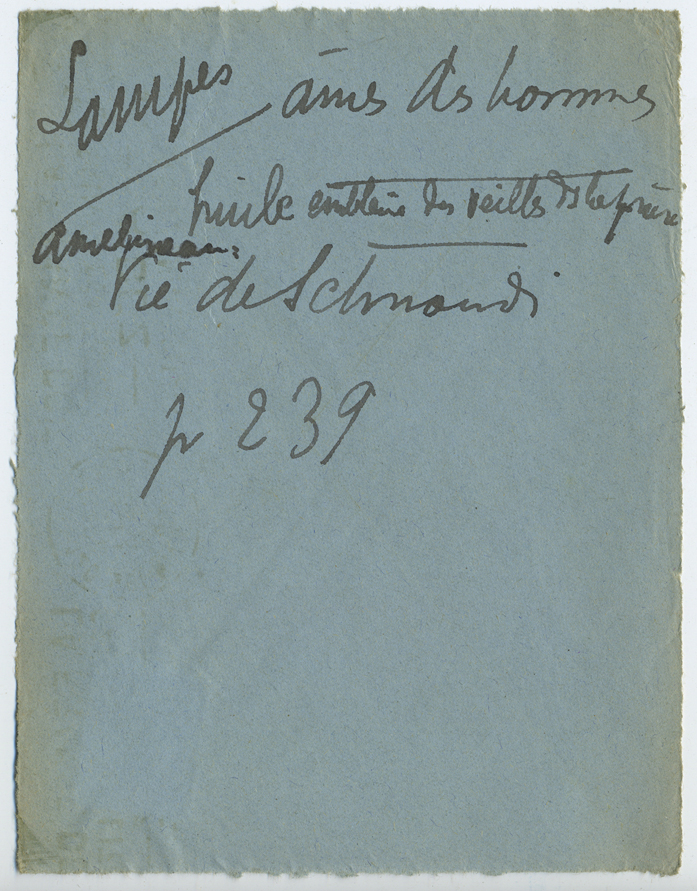 Lampes âmes des hommes
huile emblème des veilles de la prière
Amelineau:
Vie de Schnoudi
p 239